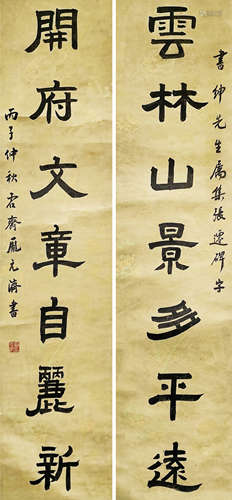 雲林山景多平遠
書紳先生屬集張遷碑字
開府文章自麗新
丙子仲秋君齋龐元濟書